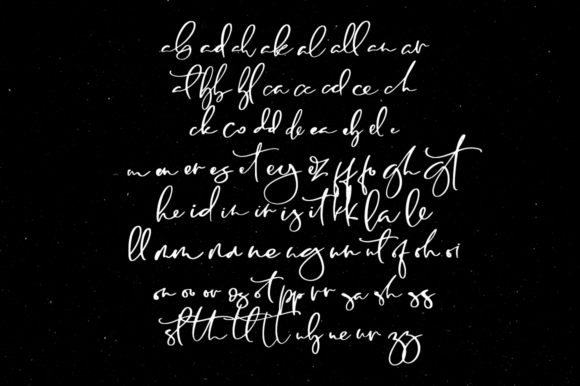 ab ad ah ak al all an ar
at bb bl ca cc cd ce ch
ck co dd de ea eb el e
en er es et ey ez ff fo gh gt
he id in ir is it kk la le
ll nd ne ng un ut of oh oi
on oo or os ot pp rr sa sh ss
st th tt ub ue ur zz